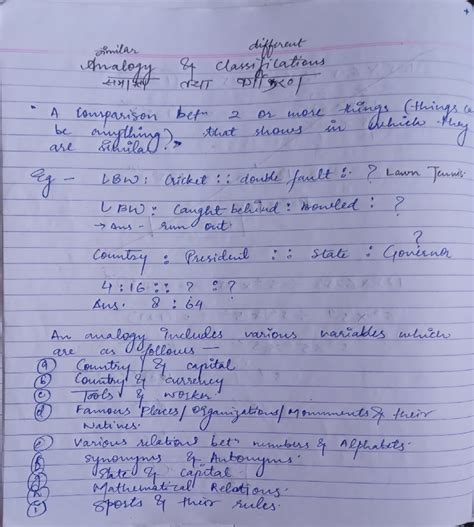 similar different
Analogy & Classifications
तथा
" A comparison betⁿ 2 or more things (things ca
be anything) that shows in which they
are similar."
Eg - LBW : Cricket :: double fault : ? Lawn Tennis
LBW : Caught behind : Bowled : ?
→ Ans - run out
?
Country : President :: State : Governor
4 : 16 :: ? : ?
Ans. 8 : 64
An analogy includes various variables which
are as follows —
(a) Country & capital
(b) Country & currency
(c) Tools & worker
(d) Famous Places/Organizations/Monuments & their
Natives.
(e) Various relations betⁿ numbers & Alphabets.
Synonyms & Antonyms
State & capital.
Mathematical Relations.
Sports & their rules.